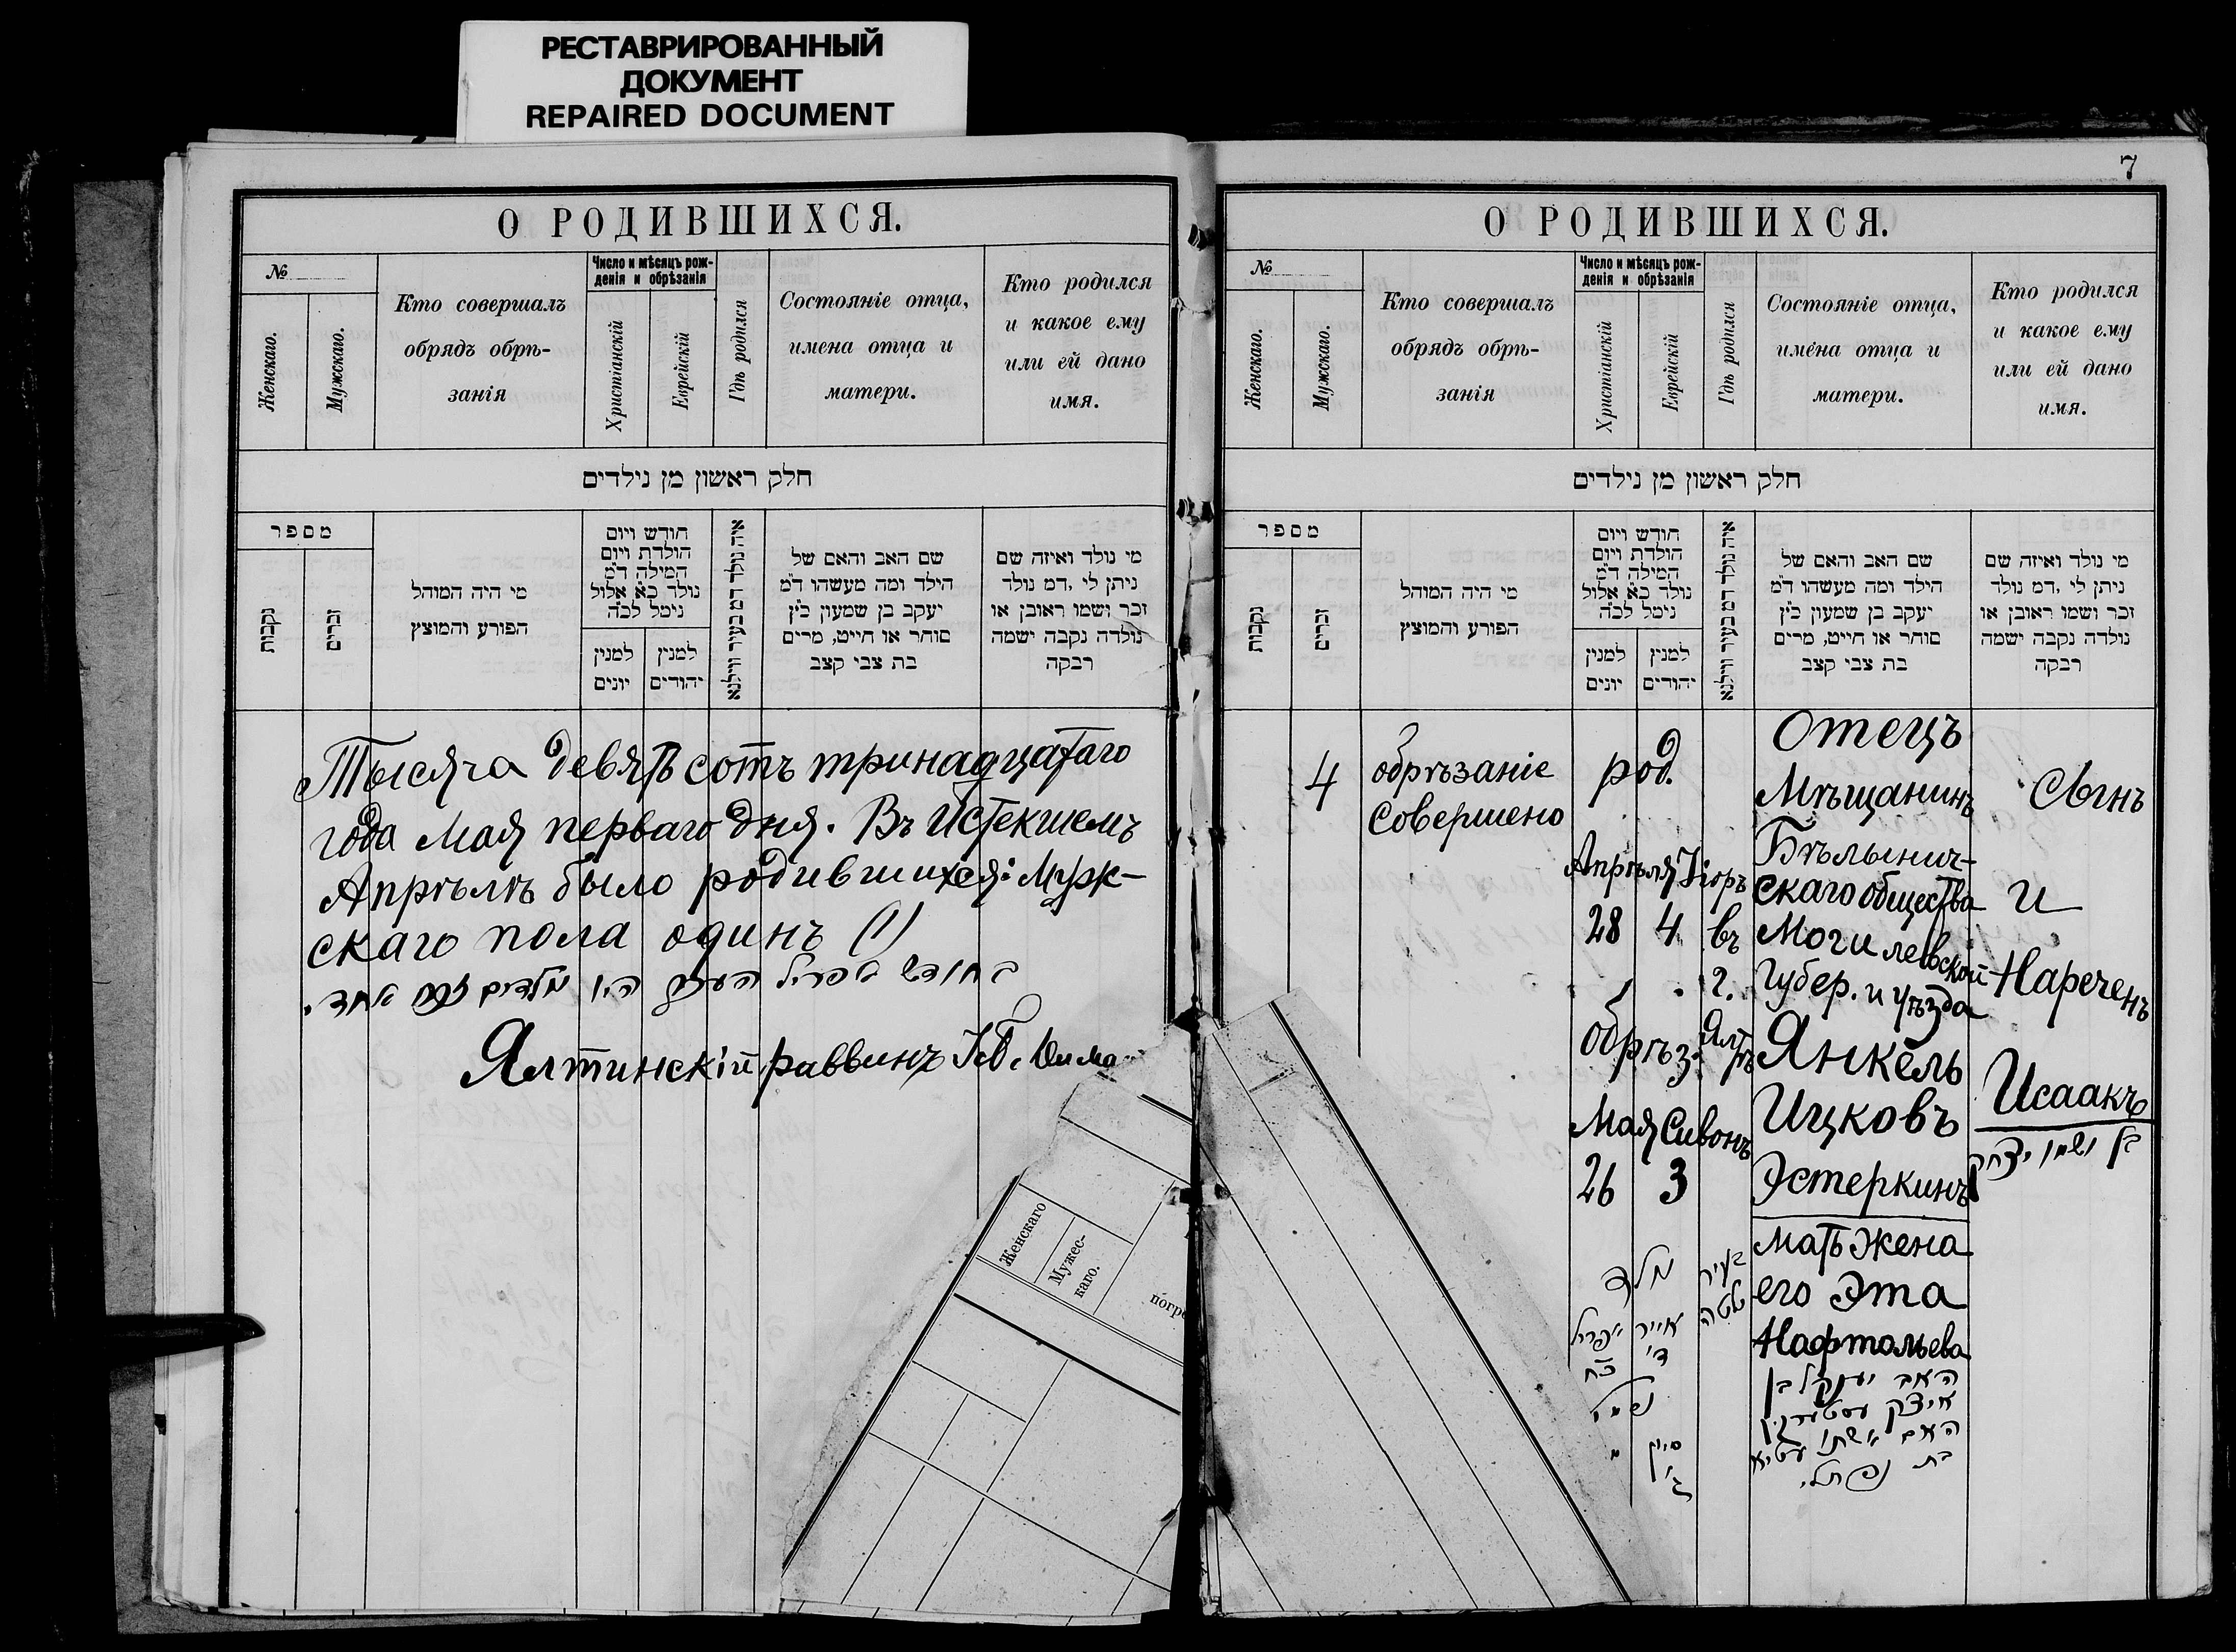 РЕСТАВРИРОВАННЫЙ
ДОКУМЕНТ
REPAIRED DOCUMENT
О РОДИВШИХСЯ.
№
Женскаго.
Мужскаго.
Кто совершалъ
обрядъ обрѣ-
занія
Число и мѣсяцъ рож-
денія и обрѣзанія
Христіанскій
Еврейскій
Гдѣ родился
Состояніе отца,
имена отца и
матери.
Кто родился
и какое ему
или ей дано
имя.
חלק ראשון מן נילדים
מספר
נקבות
זכרים
מי היה המוהל
הפורע והמוצץ
חודש ויום
הולדת ויום
המילה ד״מ
נולד כ״א אלול
נימל לכ״ה
למנין
יונים
למנין
יהודים
איה נולד דמ בעיר ווילנא
שם האב והאם של
הילד ומה מעשהו ד״מ
יעקב בן שמעון כ״ץ
סוחר או חייט, מרים
בת צבי קצב
מי נולד ואיזה שם
ניתן לי, דמ נולד
זכר ושמו ראובן או
נולדה נקבה ישמה
רבקה
Тысяча девятьсотъ тринадцатаго
года Мая перваго дня. Въ истекшемъ
Апрѣлѣ было родившихся: Муж-
скаго пола одинъ (1)
בחודש אפריל העבר היו נולדים זכר אחד.
Ялтинскій раввинъ
Женскаго
Мужес-
каго.
погре
7
О РОДИВШИХСЯ.
№
Женскаго.
Мужскаго.
Кто совершалъ
обрядъ обрѣ-
занія
Число и мѣсяцъ рож-
денія и обрѣзанія
Христіанскій
Еврейскій
Гдѣ родился
Состояніе отца,
имена отца и
матери.
Кто родился
и какое ему
или ей дано
имя.
חלק ראשון מן נילדים
מספר
נקבות
זכרים
מי היה המוהל
הפורע והמוצץ
חודש ויום
הולדת ויום
המילה ד״מ
נולד כ״א אלול
נימל לכ״ה
למנין
יונים
למנין
יהודים
איה נולד דמ בעיר ווילנא
שם האב והאם של
הילד ומה מעשהו ד״מ
יעקב בן שמעון כ״ץ
סוחר או חייט, מרים
בת צבי קצב
מי נולד ואיזה שם
ניתן לי, דמ נולד
זכר ושמו ראובן או
נולדה נקבה ישמה
רבקה
4
обрѣзаніе
совершено
род.
Апрѣля Іюръ
28 4
въ
г.
Ялтѣ
обрѣз.
Мая Сивонъ
26 3
נולד
אייר אפריל
ד׳ כ״ח
נימול
סיון
ג׳
בעיר
יאלטה
Отецъ
Мѣщанинъ
Бѣлынич-
скаго общества
Могилевской
Губер. и уѣзда
Янкель
Ицковъ
Эстеркинъ
мать жена
его Эта
Нафтольева
האב יענקיל בן
איצק עסטערקין
האם אשתו עטיא
בת נפתלי.
Сынъ
и
Нареченъ
Исаакъ
בן ושמו יצחק